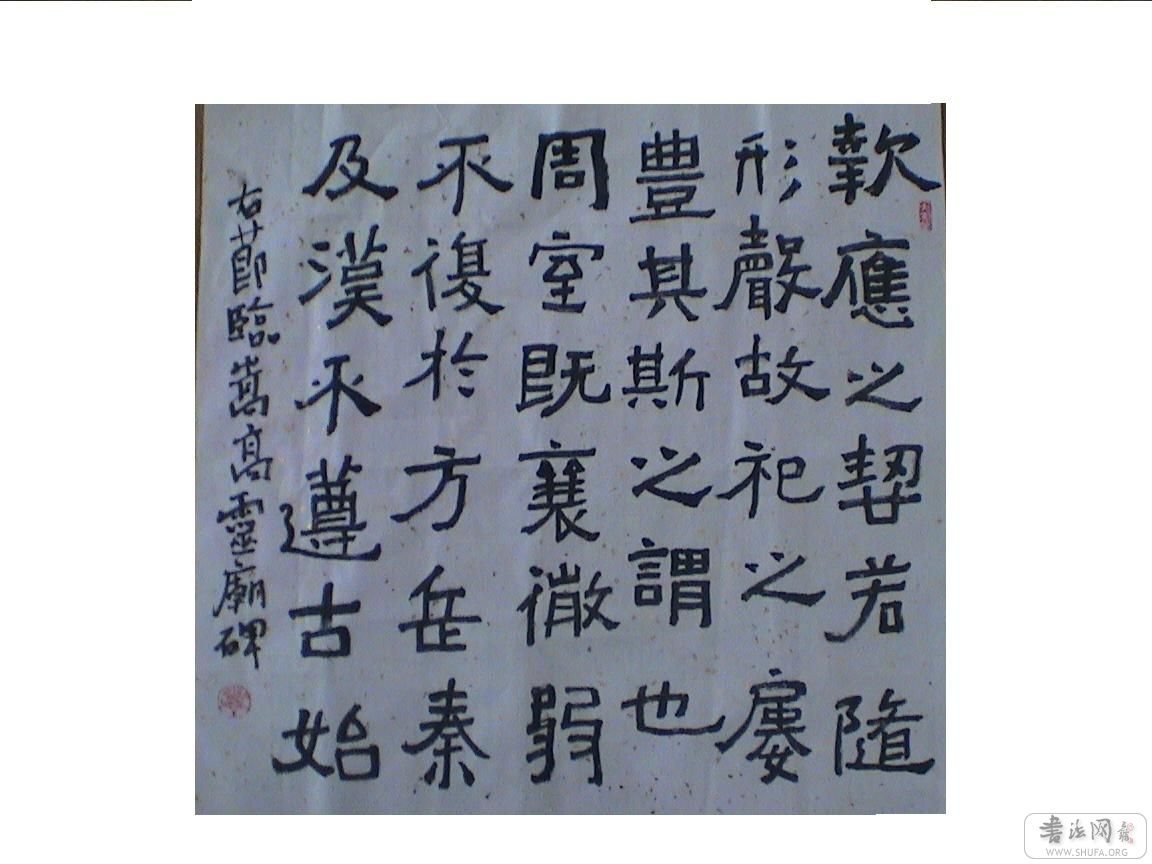 應之契若隨
形聲故祀之屢
豊其斯之謂也
周室既襄微弱
不復於方岳秦
及漢不遵古始
右莭臨嵩高靈廟碑
书法网
WWW.SHUFA.ORG